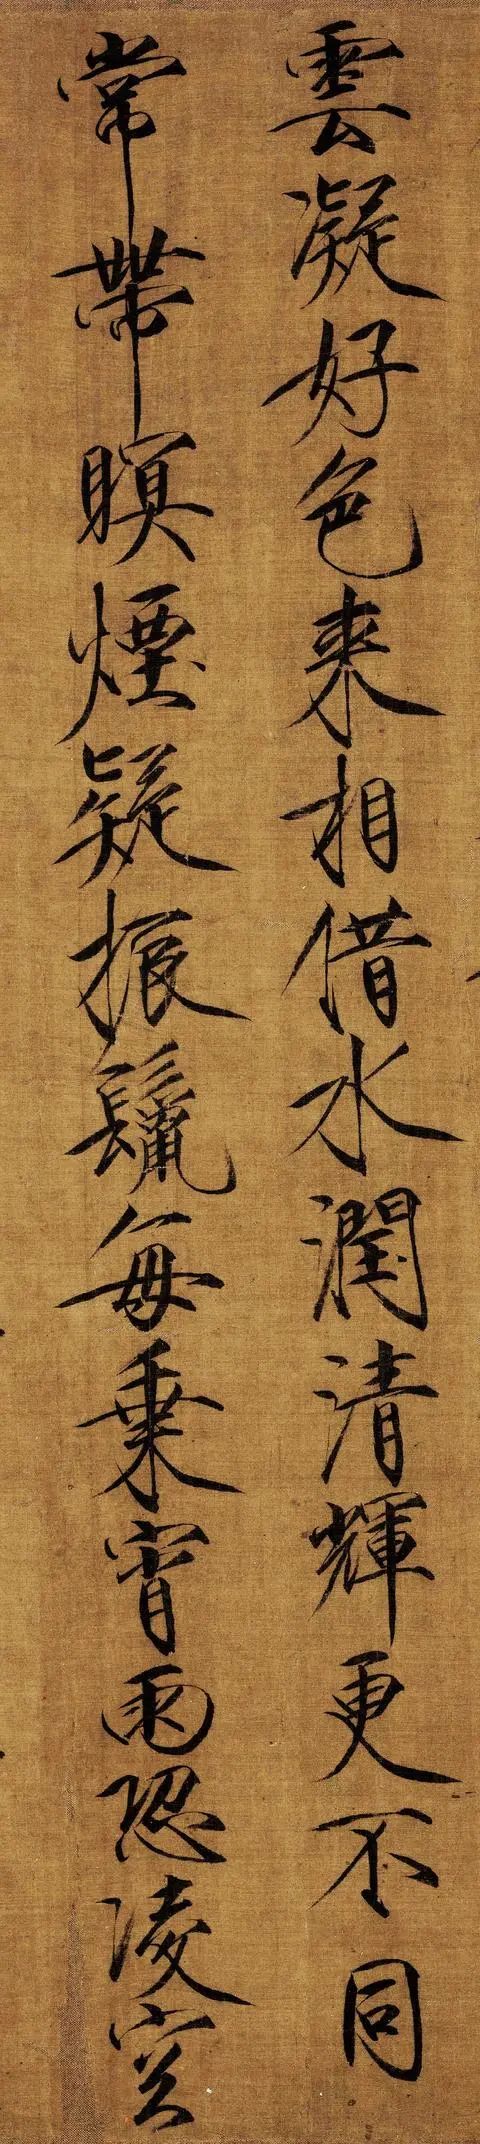 雲凝好色来相借水潤清輝更不同
常帶暝煙疑振鬣每乘宵雨恐凌空